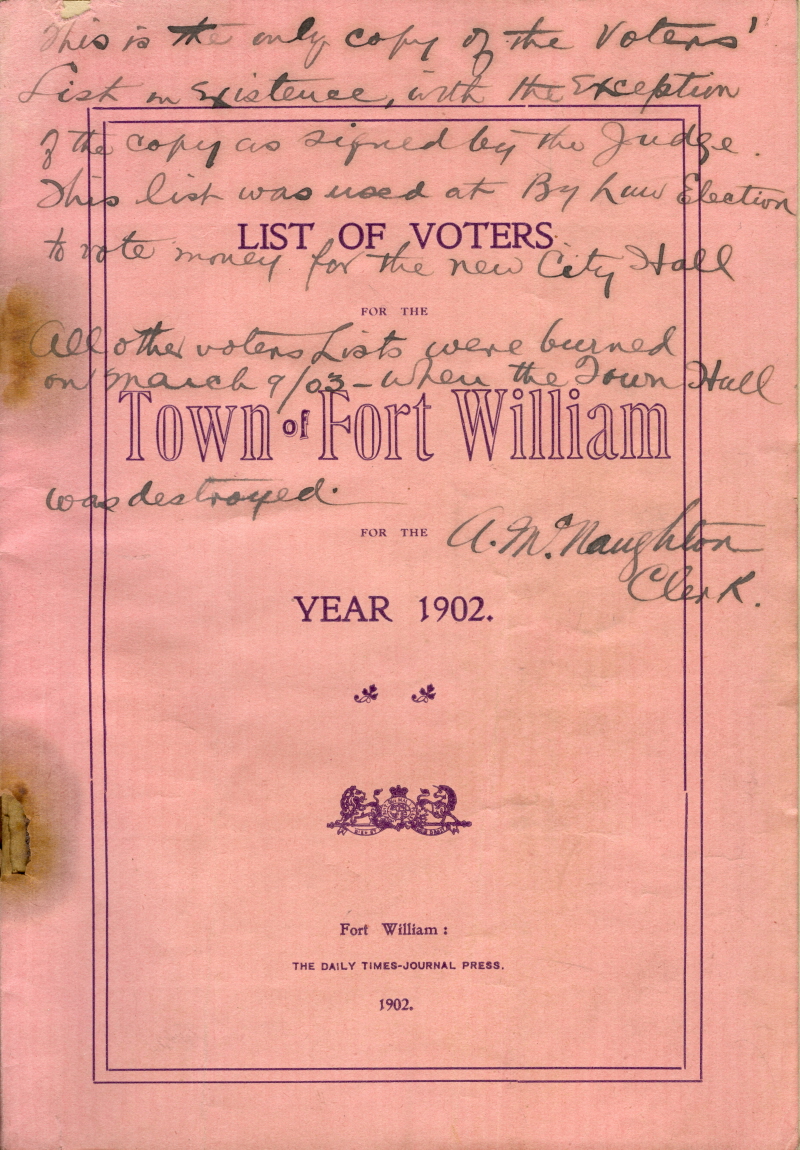 This is the only copy of the Voters'
List in Existence, with the Exception
of the copy as signed by the Judge.
This list was used at By Law Election
LIST OF VOTERS
to vote money for the new City Hall
FOR THE
All other voters Lists were burned
on March 9/03 – when the Town Hall
Town of Fort William
was destroyed.
FOR THE
A. McNaughton
Clerk.
YEAR 1902.
Fort William:
THE DAILY TIMES-JOURNAL PRESS.
1902.